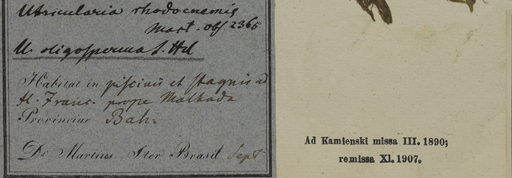 Utricularia rhodocnemis
Mart. obs. 2365
U. oligosperma S. Hil
Habitat in piscinis et stagnis ad
fl. Franc. prope Malhada
Provinciae Bah.
De Martius Iter Brasil Sept
Ad Kamienski missa III. 1890;
remissa XI. 1907.